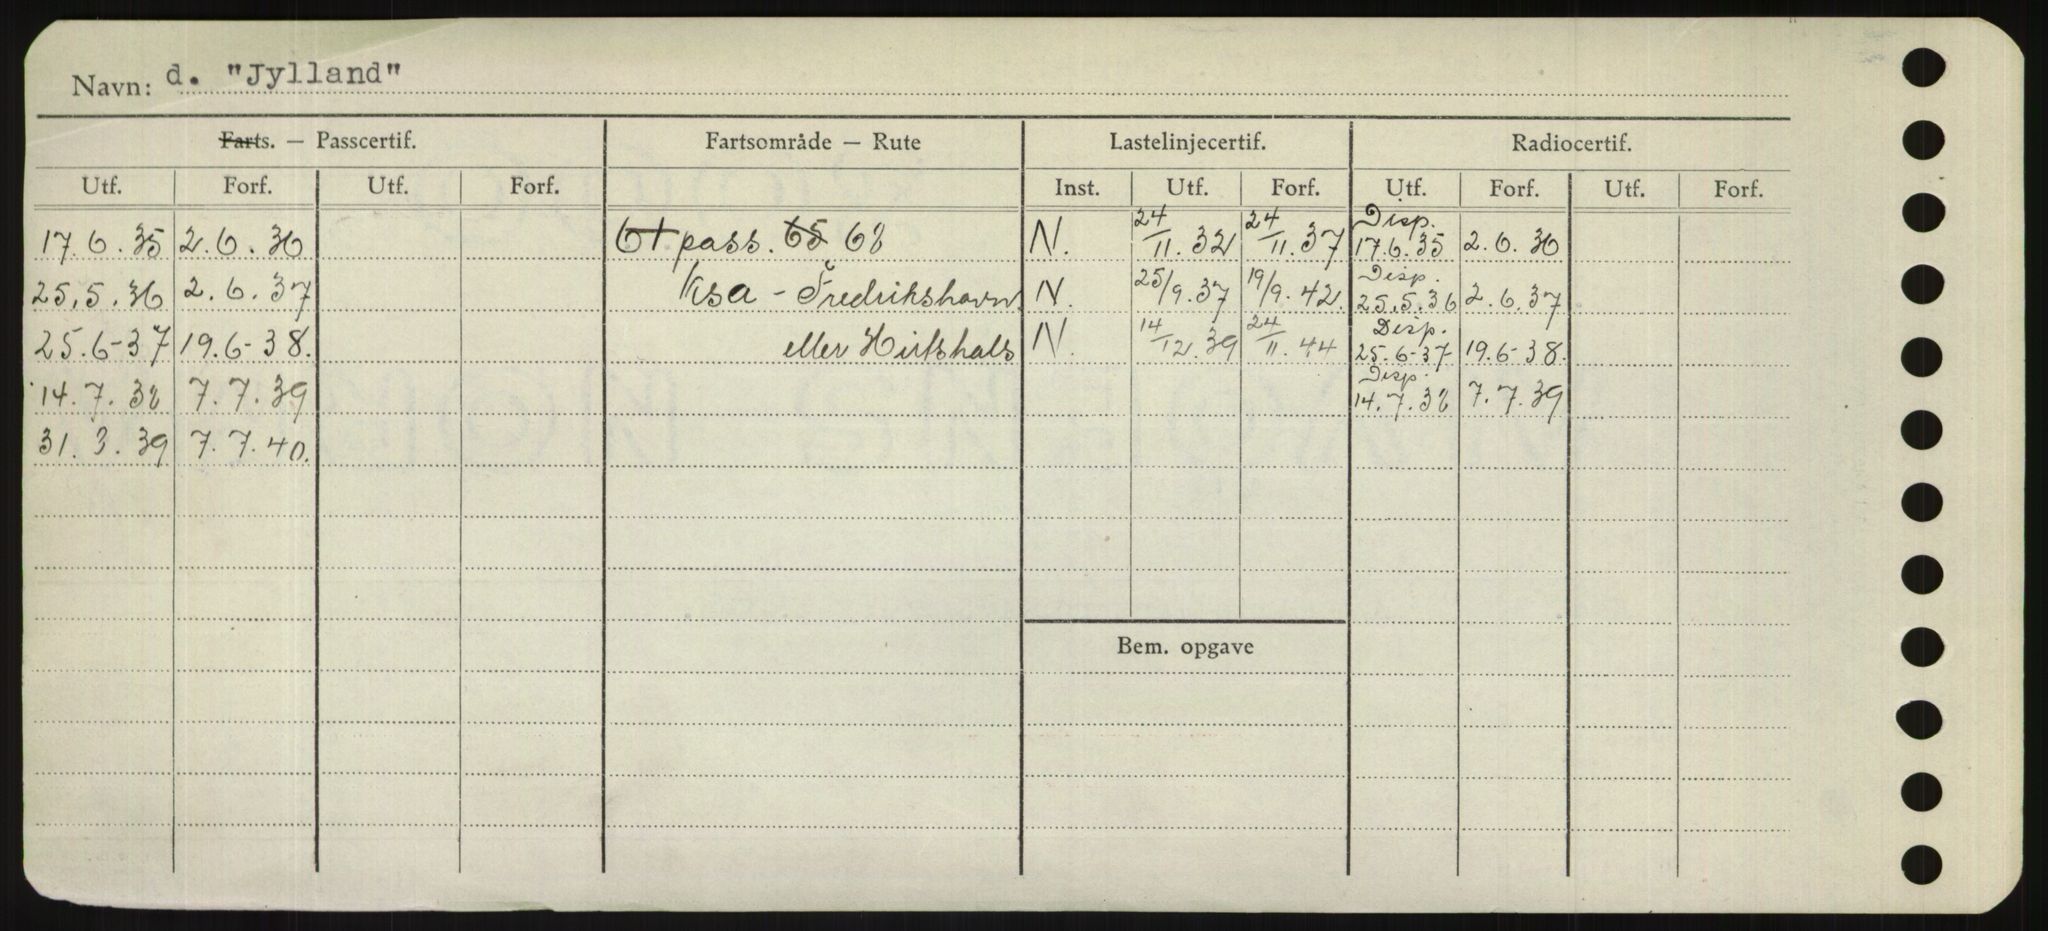 Navn: d. "Jylland"
Farts. — Passcertif. Fartsområde — Rute Lastelinjecertif. Radiocertif.
Utf. Forf. Utf. Forf. Inst. Utf. Forf. Utf. Forf. Utf. Forf.
17.6.35 2.6.36 61 pass. 65 68 N. 24/11.32 24/11.37 Disp. 17.6.35 2.6.36
25.5.36 2.6.37 Ksa - Fredrikshavn N. 25/9.37 19/9.42 Disp. 25.5.36 2.6.37
25.6-37 19.6-38. eller Hirtshals N. 14/12.39 24/11.44 Disp. 25.6-37 19.6-38.
14.7.38 7.7.39 Disp. 14.7.38 7.7.39
31.3.39 7.7.40.
Bem. opgave